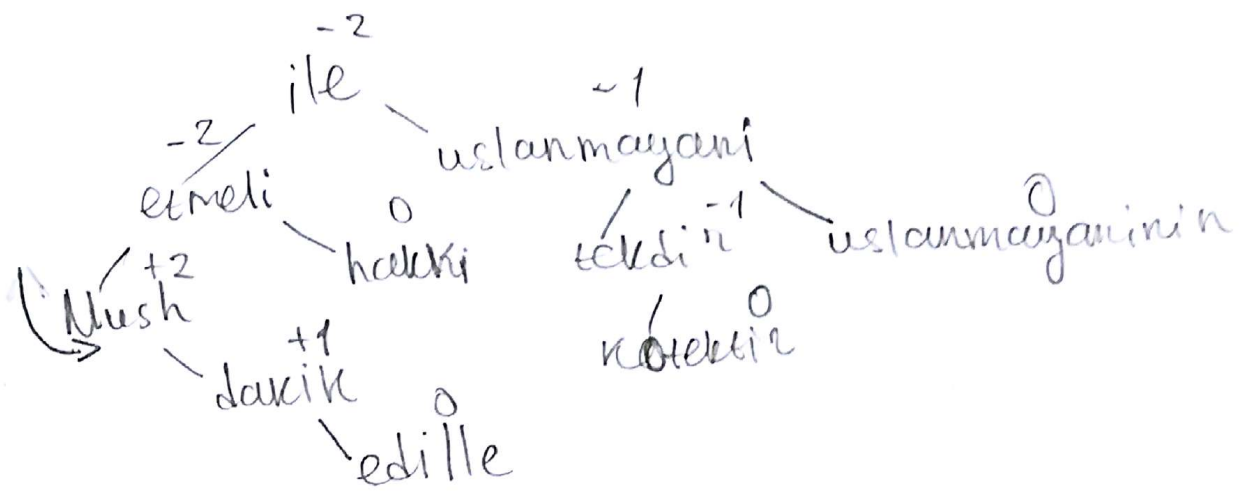 -2
ile
-1
-2
uslanmayani
etmeli
0
hakki
-1
tekdir
0
uslanmayaninin
+2
Nush
0
kötektir
+1
dakik
0
edille